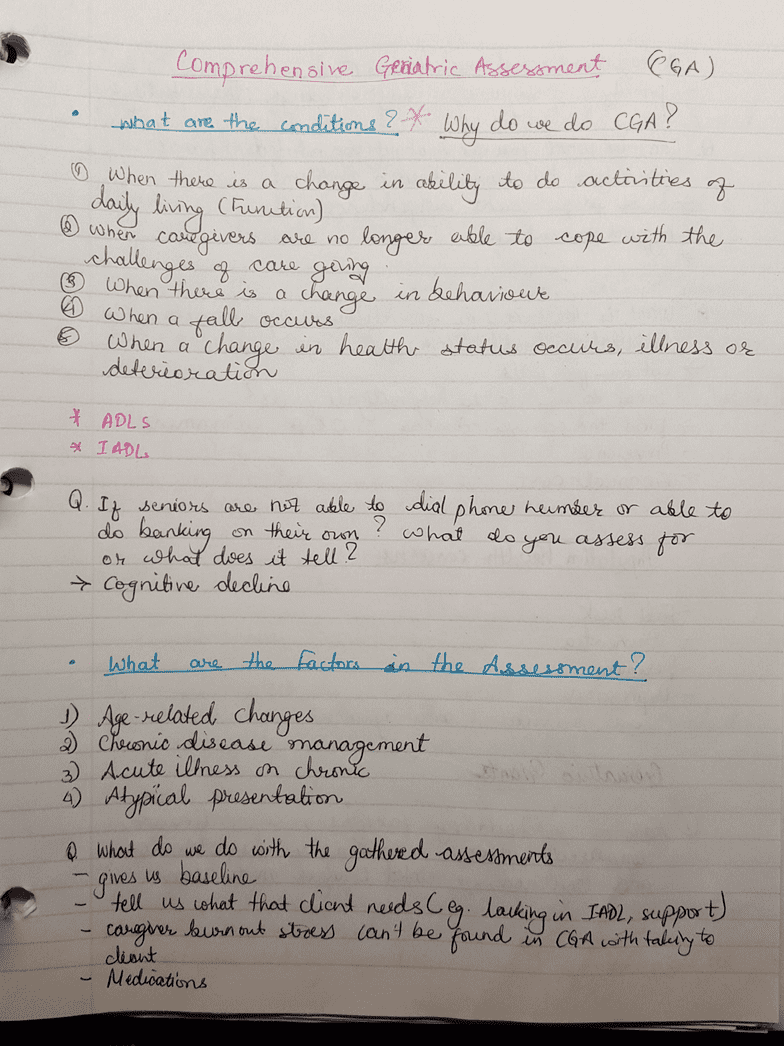 Comprehensive Geriatric Assessment (CGA)
• What are the conditions? * Why do we do CGA?
① When there is a change in ability to do activities of
daily living (Function)
② When caregivers are no longer able to cope with the
challenges of care giving.
③ When there is a change in behaviour
④ When a fall occurs
⑤ When a change in health status occurs, illness or
deterioration
* ADLs
* IADL
Q. If seniors are not able to dial phone number or able to
do banking on their own? What do you assess for
or what does it tell?
→ Cognitive decline
• What are the Factors in the Assessment?
1) Age-related changes
2) Chronic disease management
3) Acute illness on chronic
4) Atypical presentation
Q What do we do with the gathered assessments
- gives us baseline
- tell us what that client needs (eg. lacking in IADL, support)
- caregiver burnout stress can't be found in CGA with talking to
client
- Medications